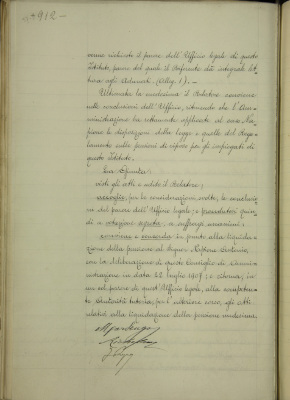 4912 —
venne richiesto il parere dell'Ufficio legale di questo
Istituto, parere del quale il Referente dà integrale let-
tura agli Adunati. (Alleg. 1). —
Ultimata la medesima il Relatore conviene
colle conclusioni dell'Ufficio, ritenendo che l'Am-
ministrazione ha rettamente applicato al caso Ma-
pione le disposizioni della legge e quelle del Rego-
lamento sulle pensioni di riposo per gli impiegati di
questo Istituto. —
La Giunta:
visti gli atti e udito il Relatore;
accoglie, per le considerazioni svolte, le conclusio-
ni del parere dell'Ufficio legale; e procedutosi quin-
di a votazione segreta a suffragi unanimi;
conferma e
zione della pensione al Signor Antonio,
con la deliberazione di questo Consiglio di Ammi-
nistrazione in data 22 luglio 1907; e
un col parere di quest'Ufficio legale, alla
Autorità tutoria, per l'ulteriore corso, gli atti
relativi alla liquidazione della pensione medesima.